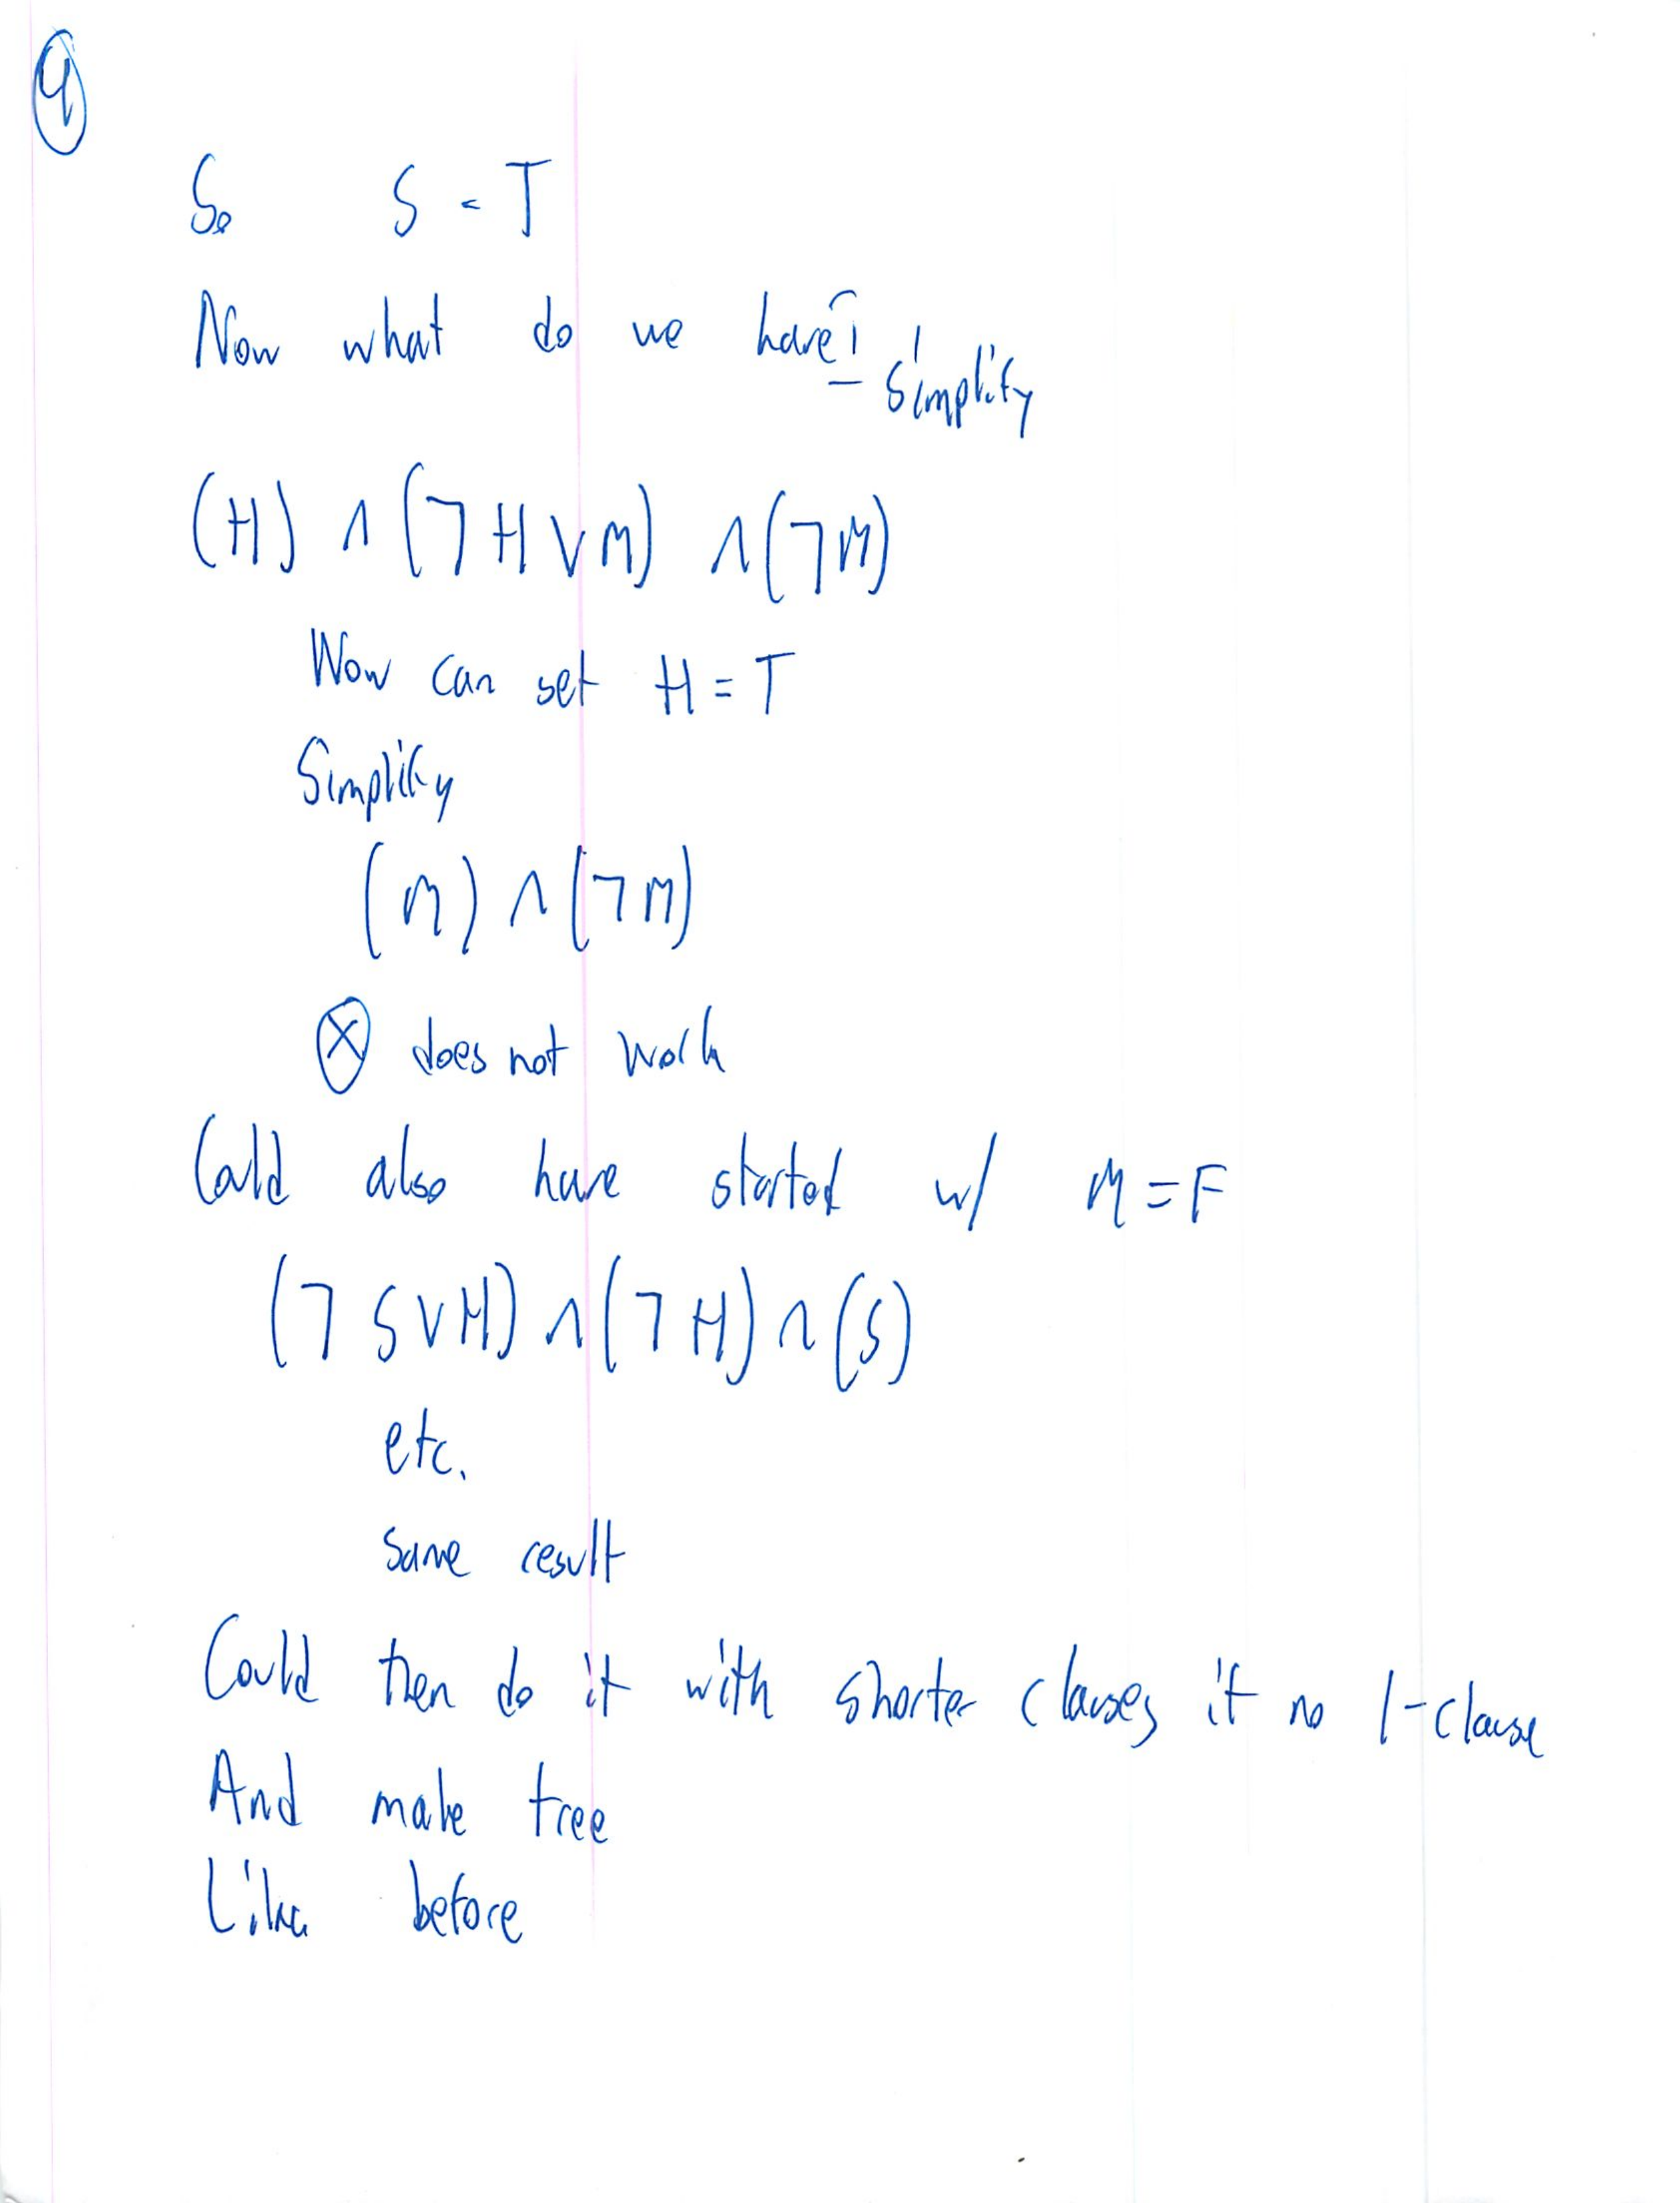 ④
So S = T
Now what do we have? - Simplify
(H) ∧ (¬ H ∨ M) ∧ (¬ M)
Now can set H = T
Simplify
(M) ∧ (¬ M)
ⓧ does not work
Could also have started w/ M = F
(¬ S ∨ H) ∧ (¬ H) ∧ (S)
etc.
same result
Could then do it with shorter clauses if no 1-clause
And make tree
Like before